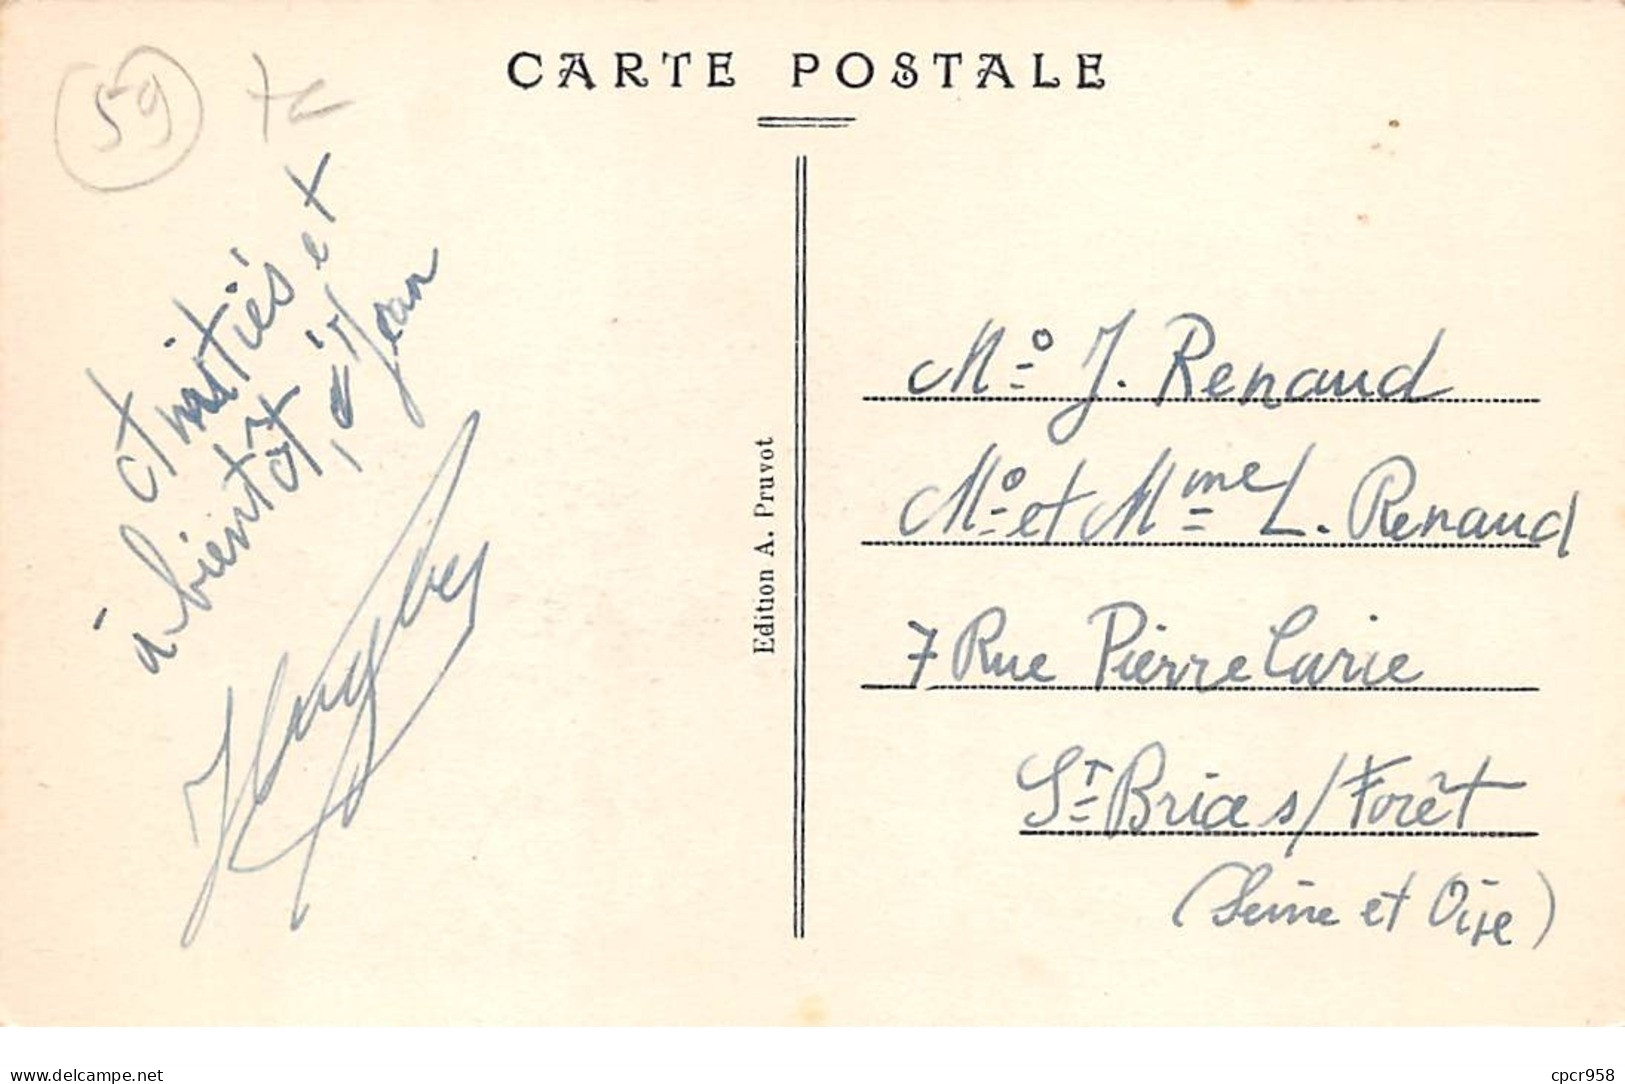 CARTE POSTALE
59
Amitiés et
à bientôt, Jean
Edition A. Pruvot
Mº J. Renaud
Mº et Mme L. Renaud
7 Rue Pierre Curie
St Brias/Forêt
(Seine et Oise)
delcampe.net
cpcr958